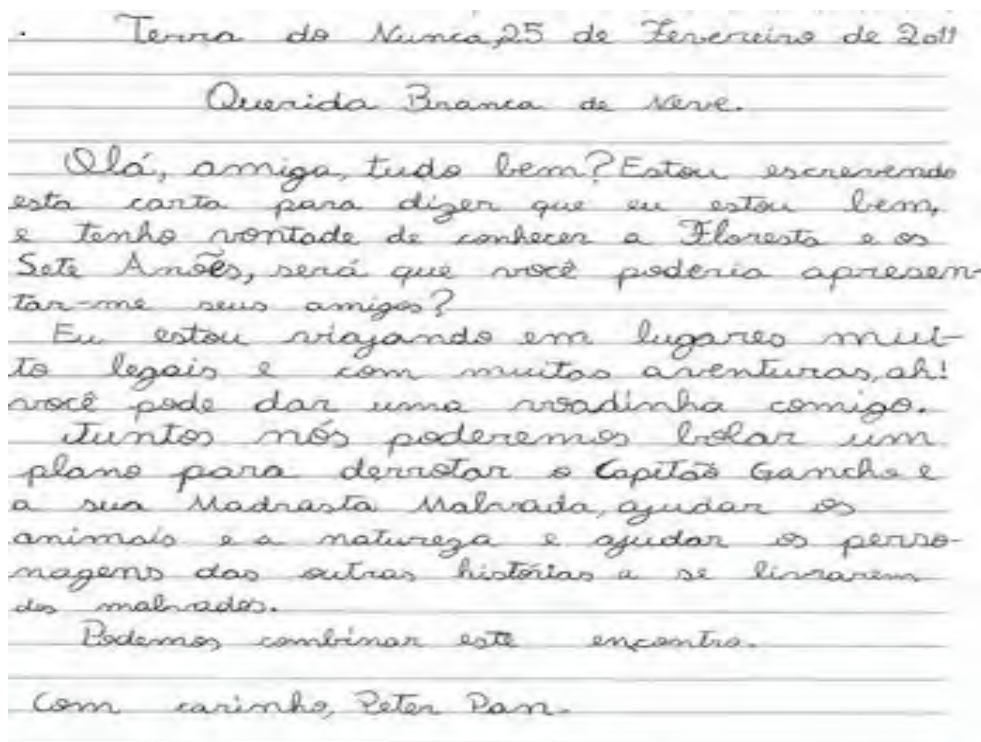 Terra do Nunca, 25 de Fevereiro de 2011
Querida Branca de Neve.
Olá, amiga, tudo bem? Estou escrevendo
esta carta para dizer que eu estou bem,
e tenho vontade de conhecer a Floresta e os
Sete Anões, será que você poderia apresen-
tar-me seus amigos?
Eu estou viajando em lugares mui-
to legais e com muitas aventuras, ah!
você pode dar uma voadinha comigo.
Juntos nós poderemos bolar um
plano para derrotar o Capitão Gancho e
a sua Madrasta Malvada, ajudar os
animais e a natureza e ajudar os perso-
nagens das outras histórias a se livrarem
dos malvados.
Podemos combinar este encontro.
Com carinho, Peter Pan.